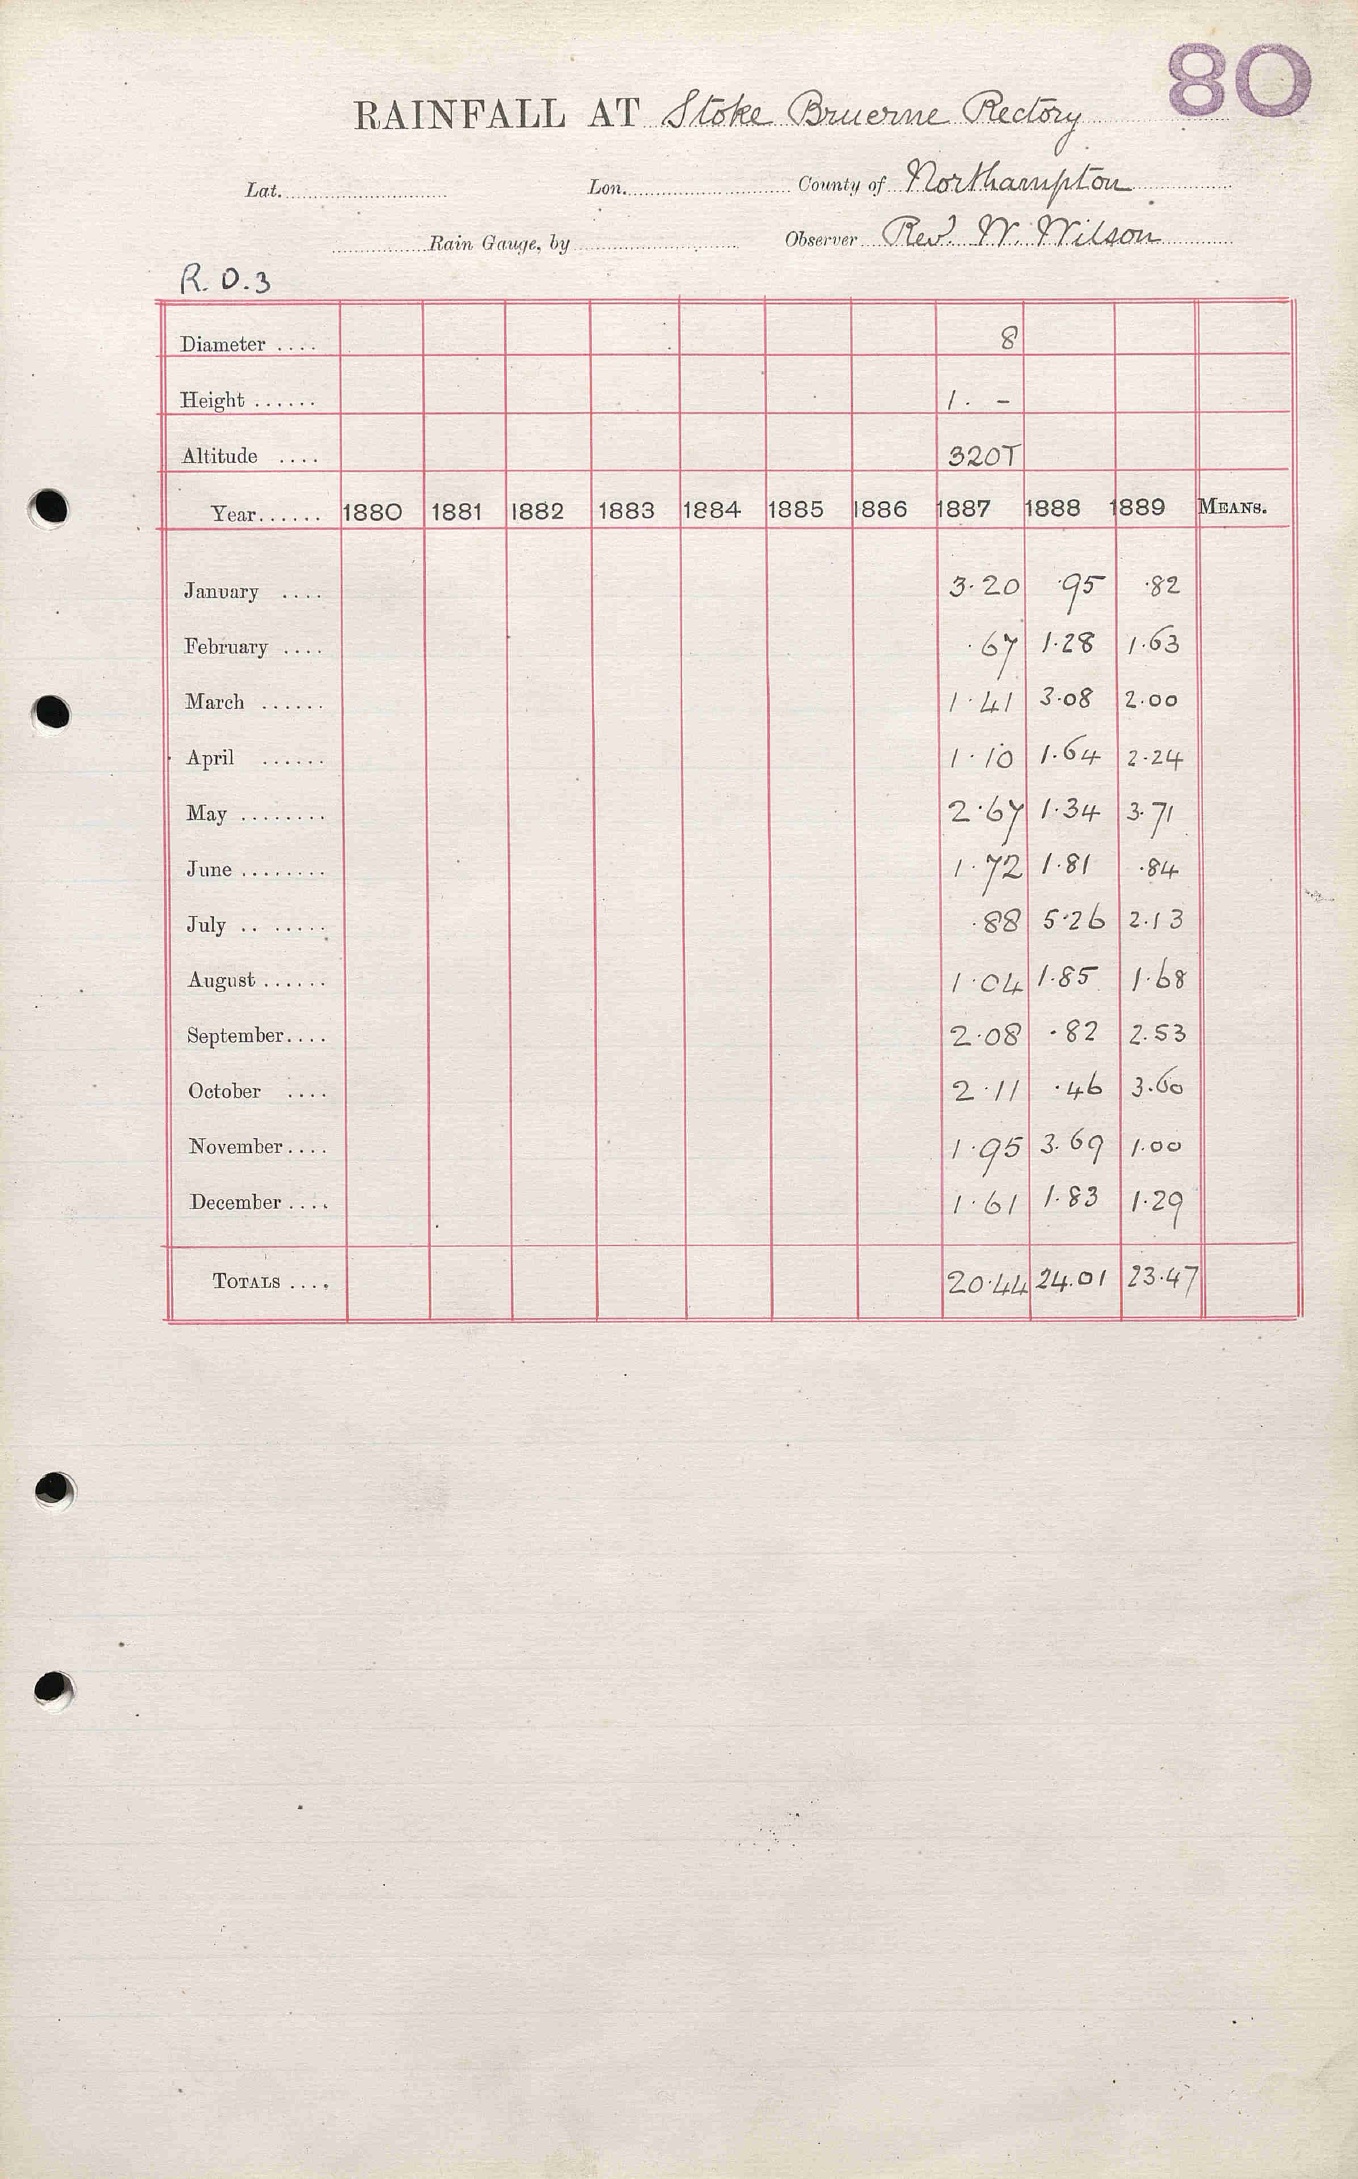 80
RAINFALL AT Stoke Bruerne Rectory
Lat. Lon. County of Northampton
Rain Gauge, by Observer Rev. W. Wilson
R. O. 3
Diameter .... 8
Height ...... 1. -
Altitude .... 320T
Year...... 1880 1881 1882 1883 1884 1885 1886 1887 1888 1889 MEANS.
January .... 3.20 .95 .82
February .... .67 1.28 1.63
March ...... 1.41 3.08 2.00
April ...... 1.10 1.64 2.24
May ........ 2.67 1.34 3.71
June ........ 1.72 1.81 .84
July .. ...... .88 5.26 2.13
August ...... 1.04 1.85 1.68
September.... 2.08 .82 2.53
October .... 2.11 .46 3.60
November.... 1.95 3.69 1.00
December .... 1.61 1.83 1.29
TOTALS .... 20.44 24.01 23.47